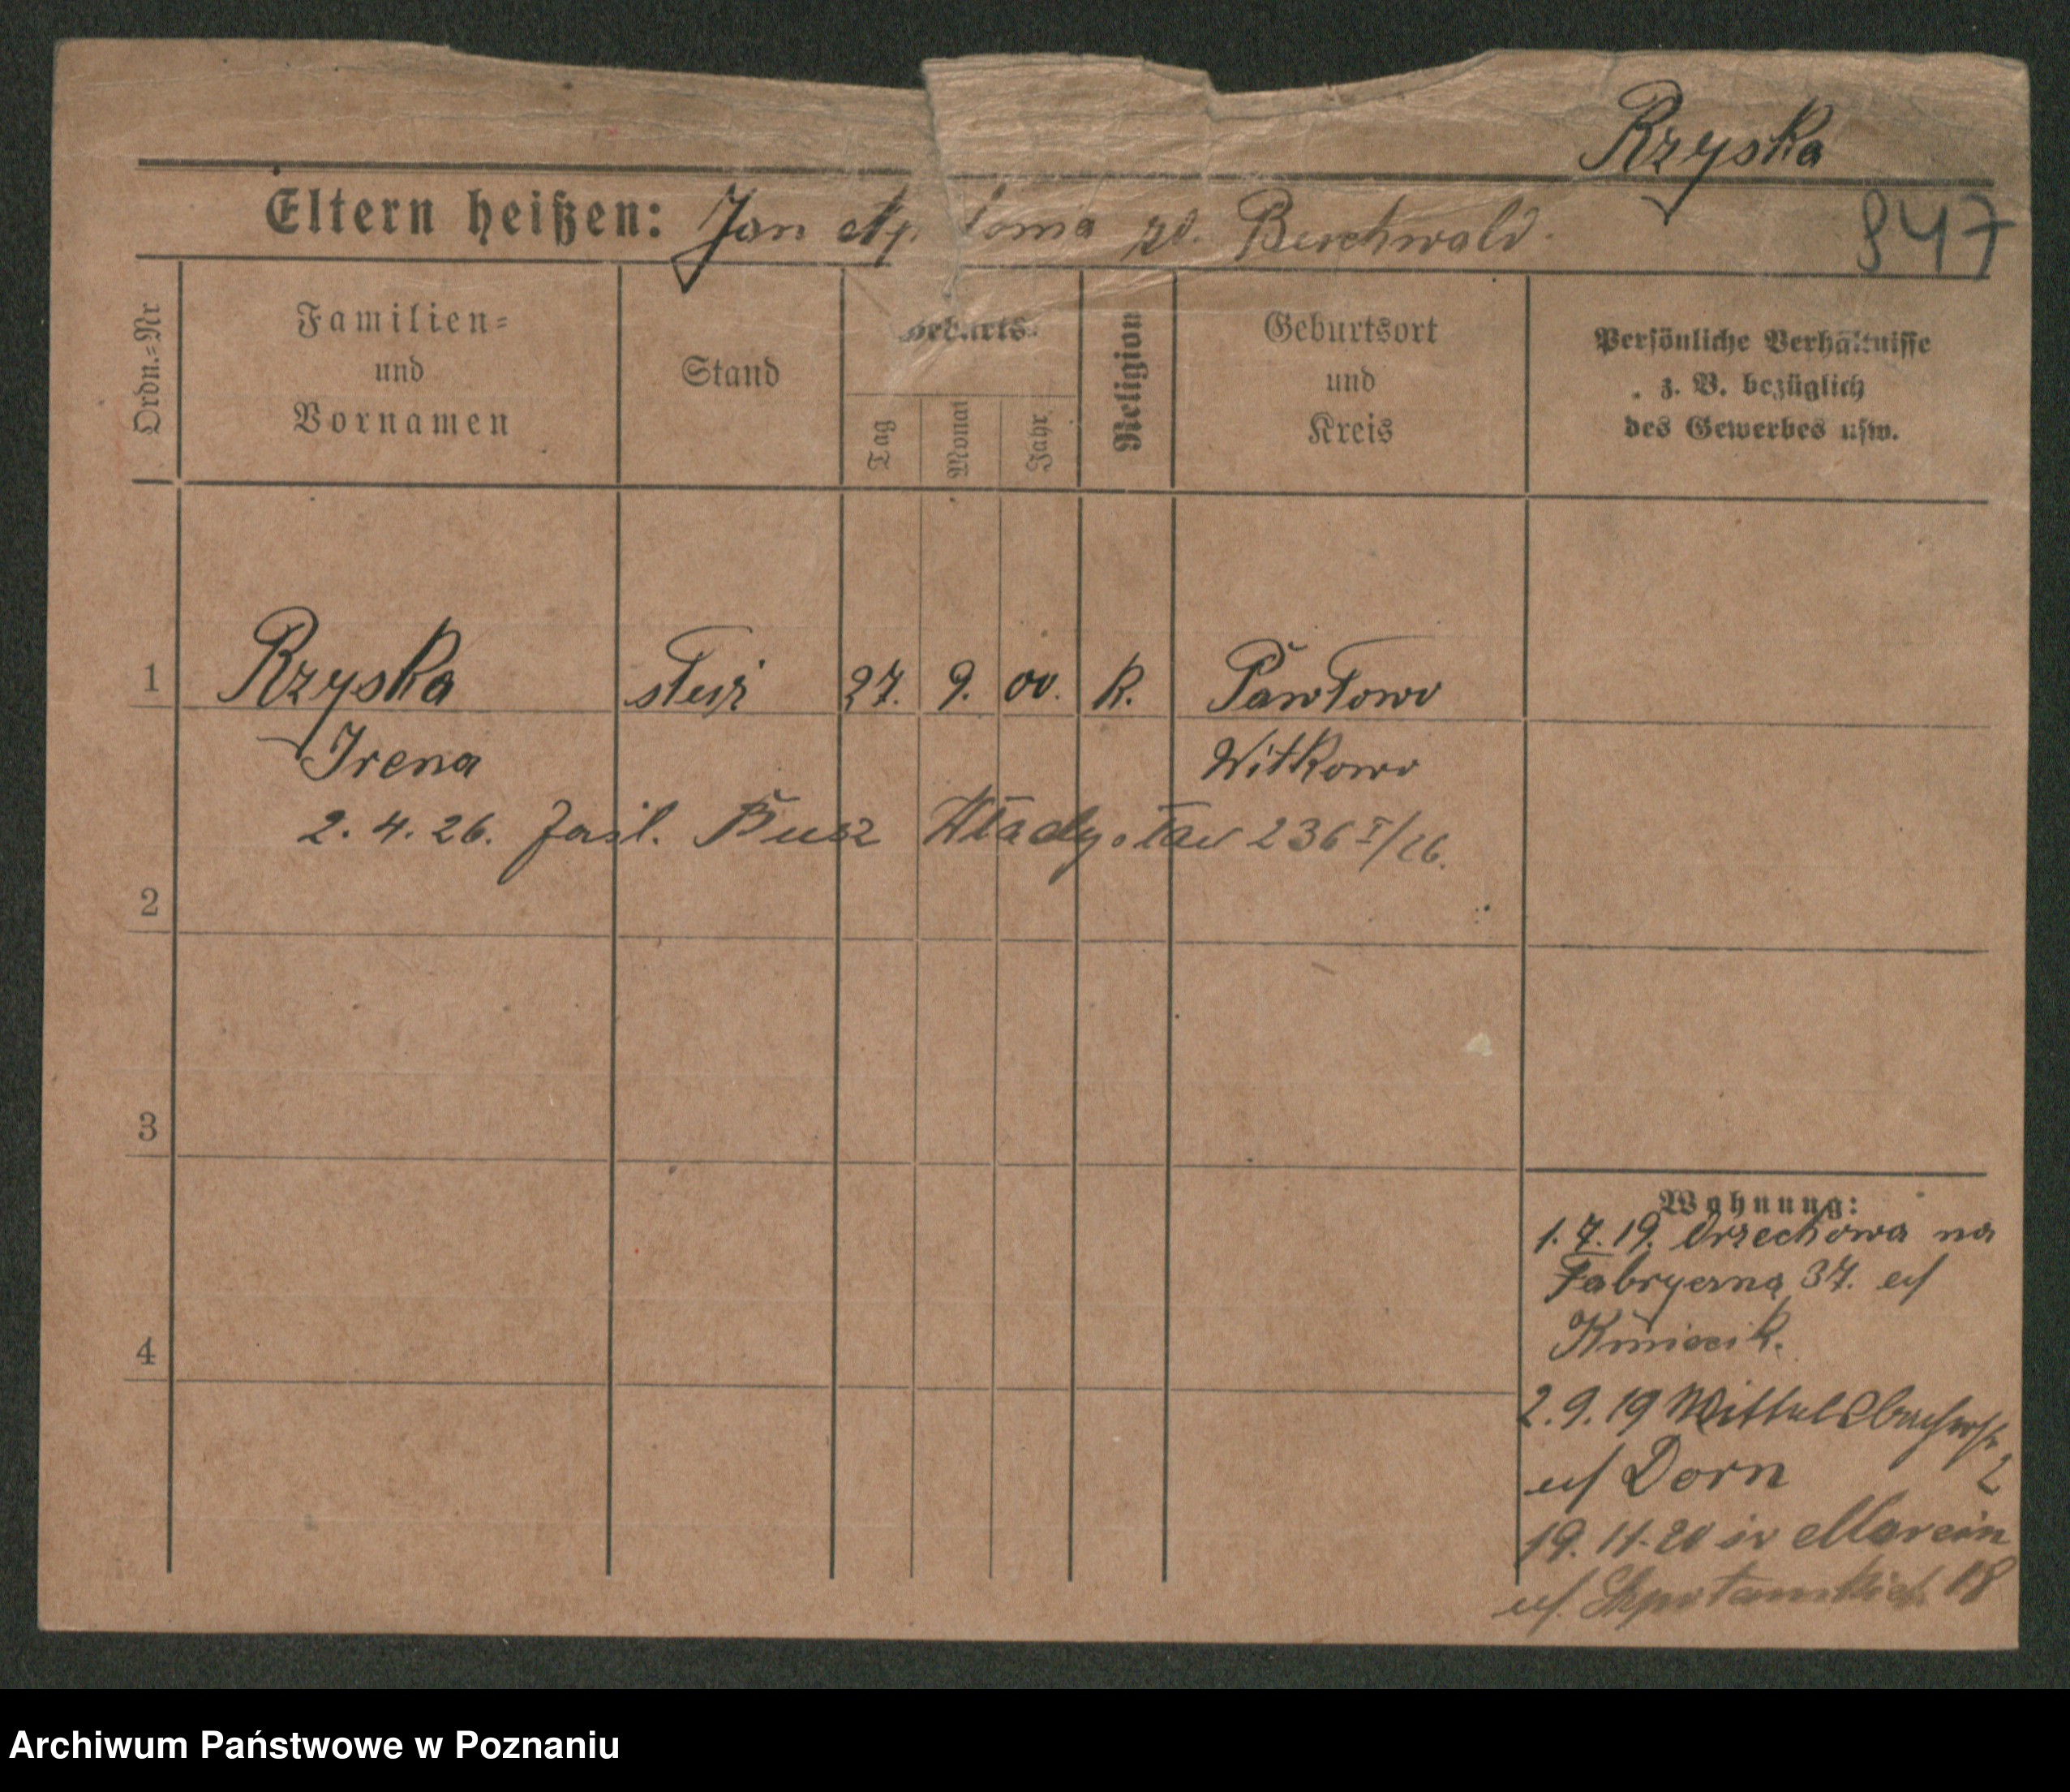 Rzyska
Eltern heißen: Jan Ap tonia zd. Buchwald.
847
Ordn.=Nr
Familien=
und
Vornamen
Stand
Geburts=
Tag
Monat
Jahr
Religion
Geburtsort
und
Kreis
Persönliche Verhältnisse
z. B. bezüglich
des Gewerbes usw.
1 Rzyska 27. 9. 00. K. Pawłowo
Irena Witkowo
2. 4. 26. zaśl. Busz Władysław 236 I/26.
2
3
4
Wohnung:
1. 7. 19. Orzechowa na
Fabryczną 37. u/
Kmiecik.
2. 9. 19 Wittelsbacherstr
2
u/ Dorn
19. 11. 20 św Marcin
u/. 18
Archiwum Państwowe w Poznaniu